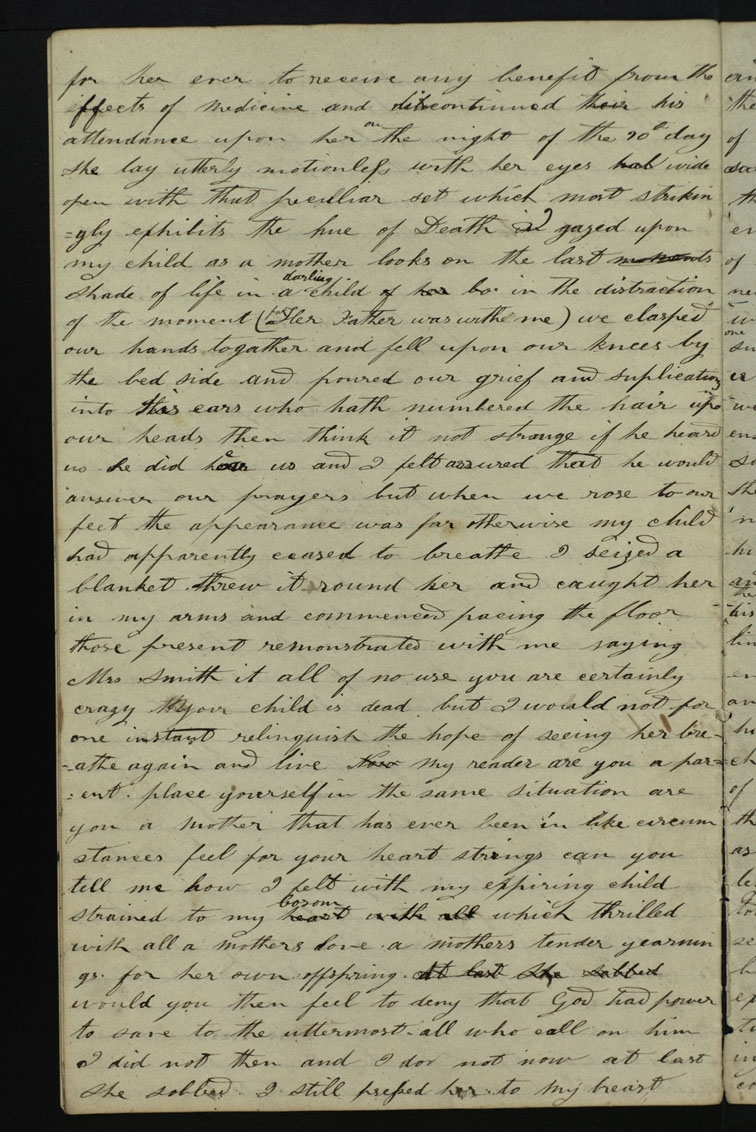 for her ever to receive any benefit from the
effects of medicine and discontinued their his
attendance upon her on the night of the 90th day
she lay utterly motionless with her eyes wide
open with that peculiar set which most strikin
=gly exhibits the hue of Death I gazed upon
my child as a mother looks on the last moments
shade of life in a darling child of her bo in the distraction
of the moment (Her Father was withe me) we clasped
our hands togather and fell upon our knees by
the bed side and poured our grief and suplications
into his ears who hath numbered the hair upo
our heads then think it not strange if he heard
us he did hear us and I felt assured that he would
answer our prayers but when we rose to our
feet the appearance was far otherwise my child
had apparently ceased to breathe I seized a
blanket threw it round her and caught her
in my arms and commenced pacing the floor
those present remonstrated with me saying
Mrs Smith it all of no use you are certainly
crazy your child is dead but I would not for
one instant relinquish the hope of seeing her bre-
=athe again and live Now my reader are you a par=
=ent place yourself in the same situation are
you a mother that has ever been in like circum
stances feel for your heart strings can you
tell me how I felt with my expiring child
strained to my heart bosom with all which thrilled
with all a mothers love a mothers tender yearnin
gs for her own offspring At last she sobbed
would you then feel to deny that God had power
to save to the uttermost all who call on him
I did not then and I doo not now at last
she sobbed I still pressed her to my breast